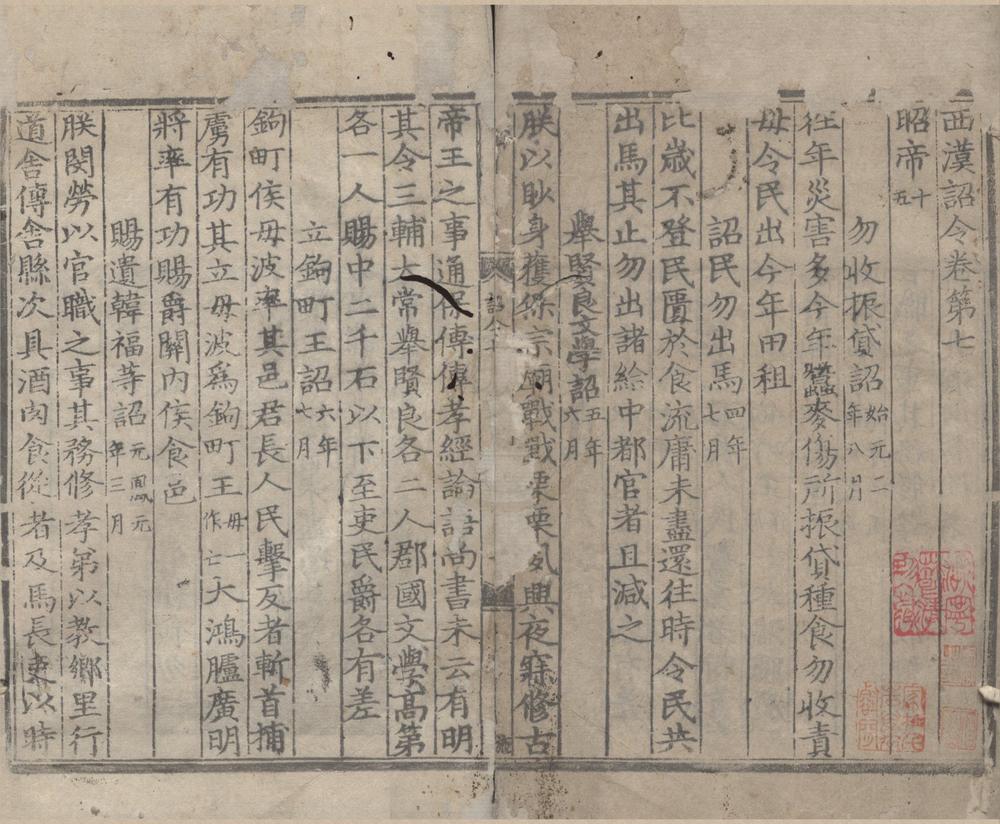 西漢詔令卷第七
昭帝十五
勿收振貸詔始元二年八月
往年災害多今年蠶麥傷所振貸種食勿收責
毋令民出今年田租
詔民勿出馬四年七月
比歲不登民匱於食流庸未盡還往時令民共
出馬其止勿出諸給中都官者且減之
舉賢良文學詔五年六月
朕以眇身獲保宗廟戰戰栗栗夙興夜寐修古
帝王之事通保傅傳孝經論語尚書未云有明
其令三輔太常舉賢良各二人郡國文學高第
各一人賜中二千石以下至吏民爵各有差
立鉤町王詔六年七月
鉤町侯毋波率其邑君長人民擊反者斬首捕
虜有功其立毋波爲鉤町王毋一作亡大鴻臚廣明
將率有功賜爵關內侯食邑
賜遺韓福等詔元鳳元年三月
朕閔勞以官職之事其務修孝弟以教鄉里行
道舍傳舍縣次具酒肉食從者及馬長吏以時
詔令七